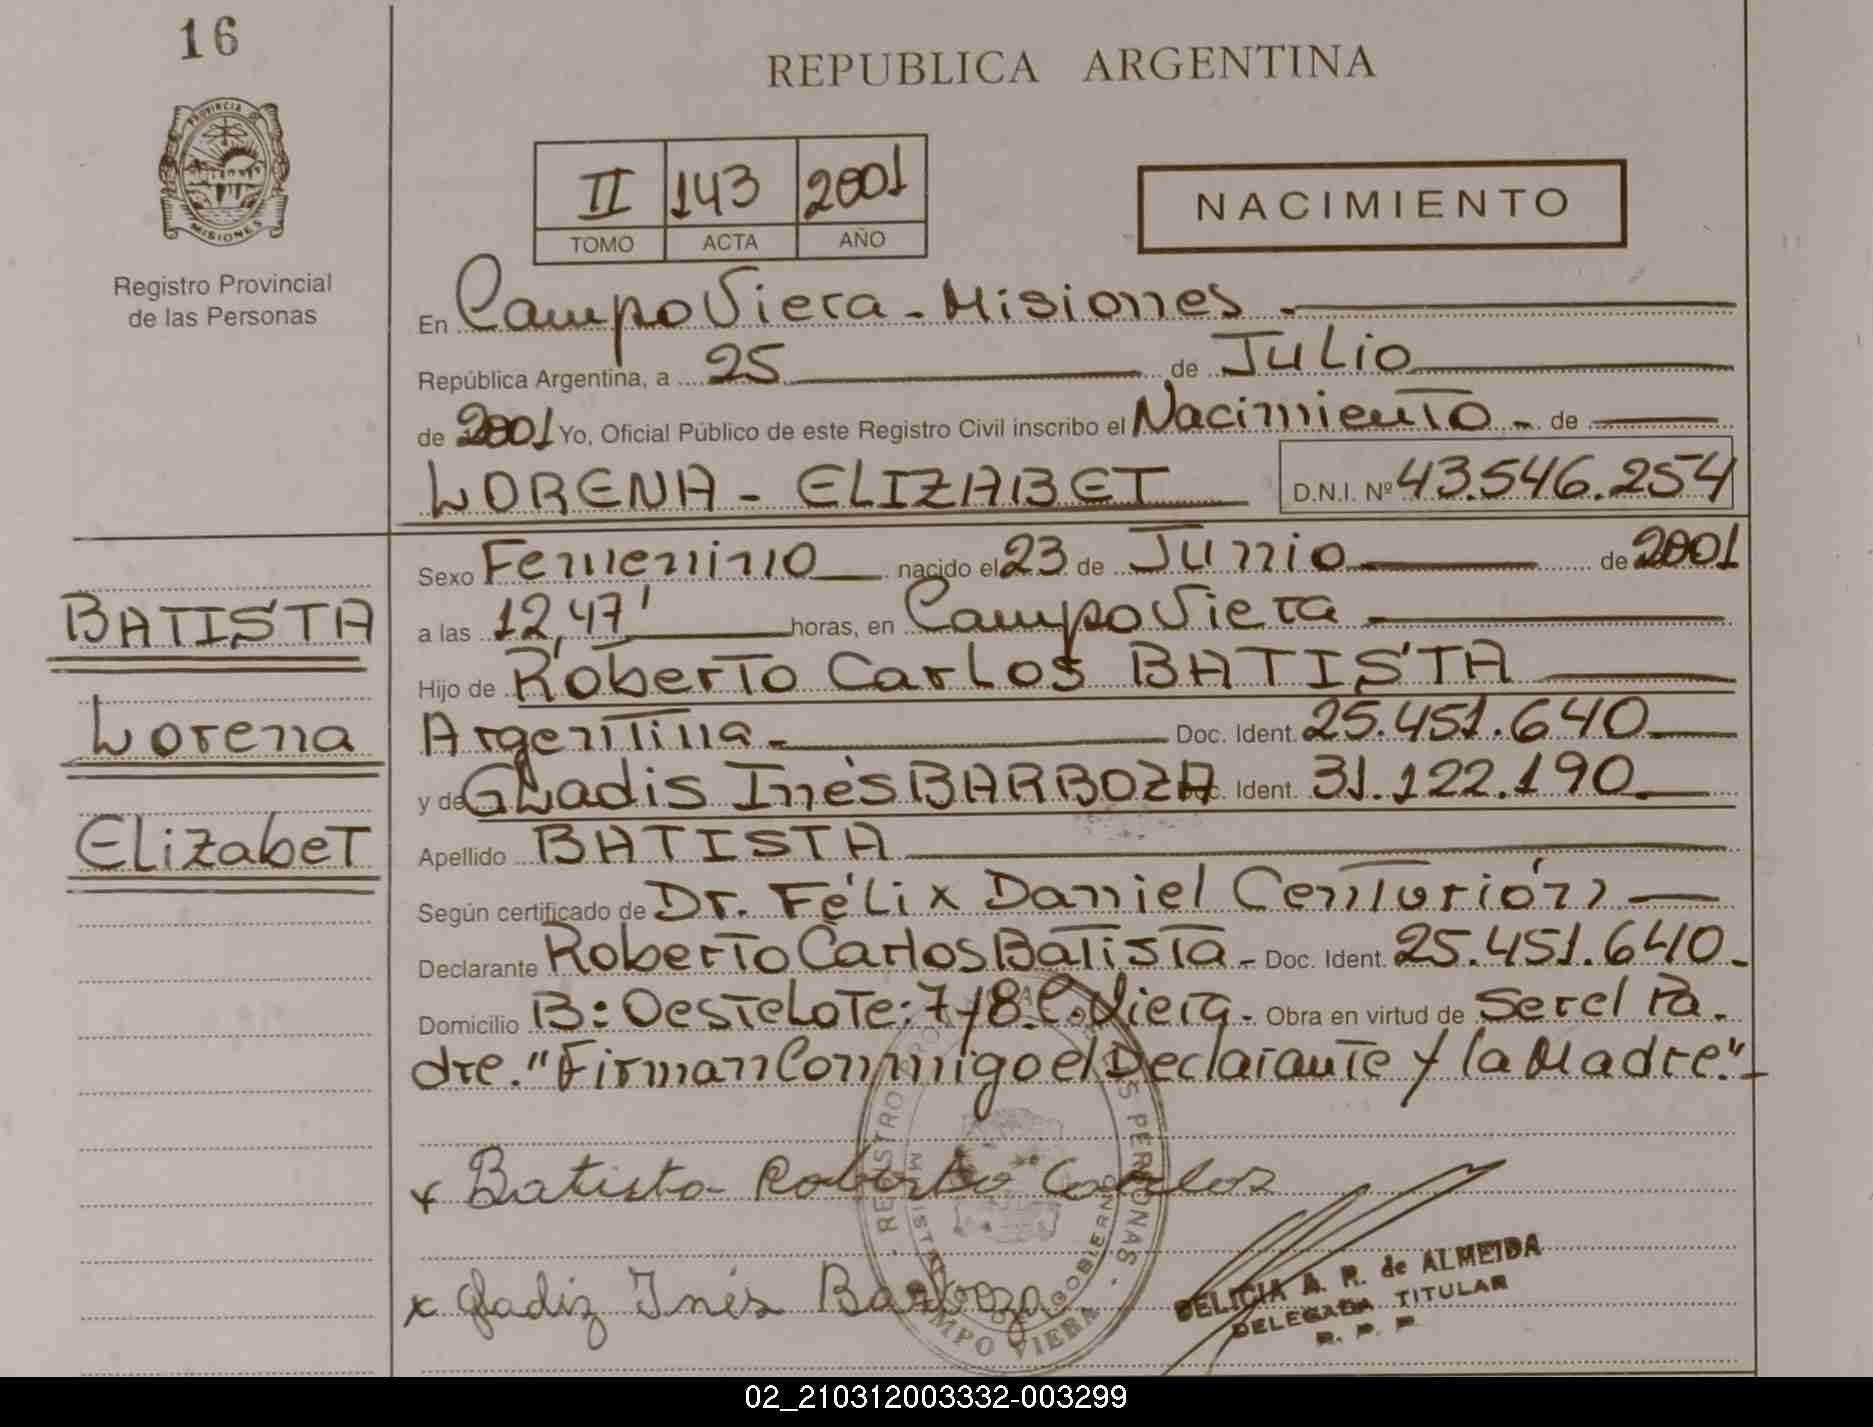 16
REPUBLICA ARGENTINA
PROVINCIA DE
MISIONES
Registro Provincial
de las Personas
II 143 2001
TOMO ACTA AÑO
NACIMIENTO
En Campo Viera - Misiones -
República Argentina, a 25 de Julio
de 2001 Yo, Oficial Público de este Registro Civil inscribo el Nacimiento - de
LORENA - ELIZABET D.N.I. Nº 43.546.254
Sexo Femenino nacido el 23 de Junio de 2001
a las 12,47' horas, en Campo Viera
Hijo de Roberto Carlos BATISTA
Argentina - Doc. Ident. 25.451.640
y de Gladis Inés BARBOZA Ident. 31.122.190
Apellido BATISTA
Según certificado de Dr. Félix Daniel Centurión
Declarante Roberto Carlos Batista - Doc. Ident. 25.451.640 -
Domicilio B: Oeste Lote: 7/8 C. Viera - Obra en virtud de Ser el Pa-
dre. "Firman Conmigo el Declarante y la Madre." -
BATISTA
Lorena
Elizabet
x Batista Roberto Carlos
x Gladiz Inés Barboza
REGISTRO PROVINCIAL DE LAS PERSONAS
CAMPO VIERA
DELICIA A. R. de ALMEIDA
DELEGADA TITULAR
R. P. P.
02_210312003332-003299